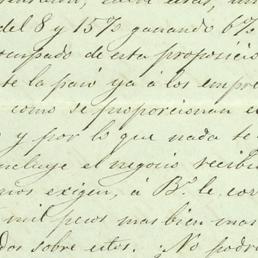 del 8 y 15% ganando 6%
ocupado de esta proposició
te la paso ya á los empre
como se proporcionan e
y por lo que nada te
ncluye el negocio recibi
nos exigen, a Bº le cor
mil pesos mas bien mas
dos sobre estos. ¿No podre